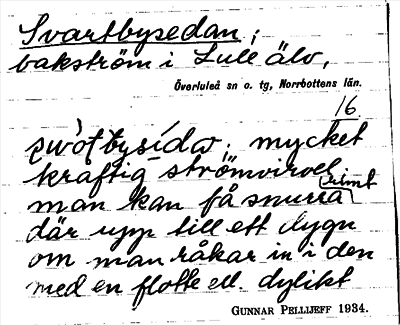 Svartbysedan;
bakström i Lule älv,
Överluleå sn o. tg, Norrbottens län.
16
mycket
kraftig strömvirvel,
man kan få snurra rimt
där upp till ett dygn
om man råkar in i den
med en flotte ell. dylikt
GUNNAR PELLIJEFF 1934.